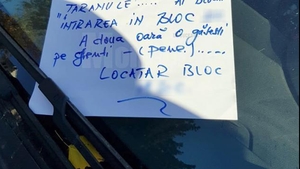 TARANULE..... AI BLOCAT
"INTRAREA IN BLOC
A DOUA OARĂ O GĂSEȘTI
pe ghenti - (pene).....
LOCATAR BLOC